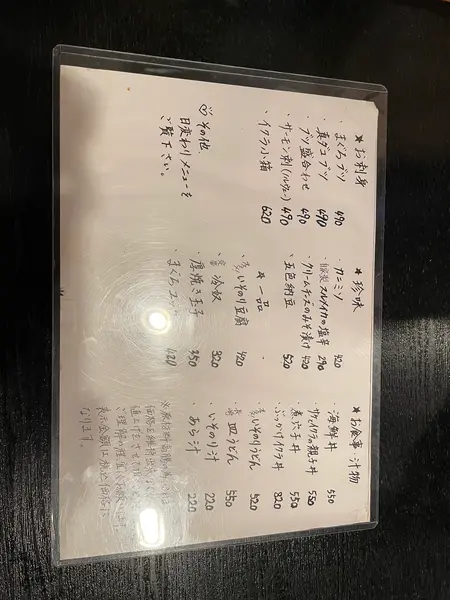 ★お刺身
・まぐろブツ 490
・真ダコブツ 490
・ブツ盛合わせ 490
・サーモン刺(ノルウェー) 490
・イクラ小箱 620
♡その他、
日変わりメニューを
ご覧下さい。
★珍味
・カニミソ 420
スルメイカの塩辛 290
・クリームチーズのみそ漬け 420
・五色納豆 520
★一品
いそのり豆腐 420
冷奴 320
・厚焼き玉子 350
・まぐろユッケ
★お食事・汁物
・海鮮丼 550
・サケイクラの親子丼 550
・煮穴子丼 550
・ぶっかけイクラ丼 820
いそのりうどん 520
皿うどん 550
・いそのり汁 220
・あら汁 220
なります。